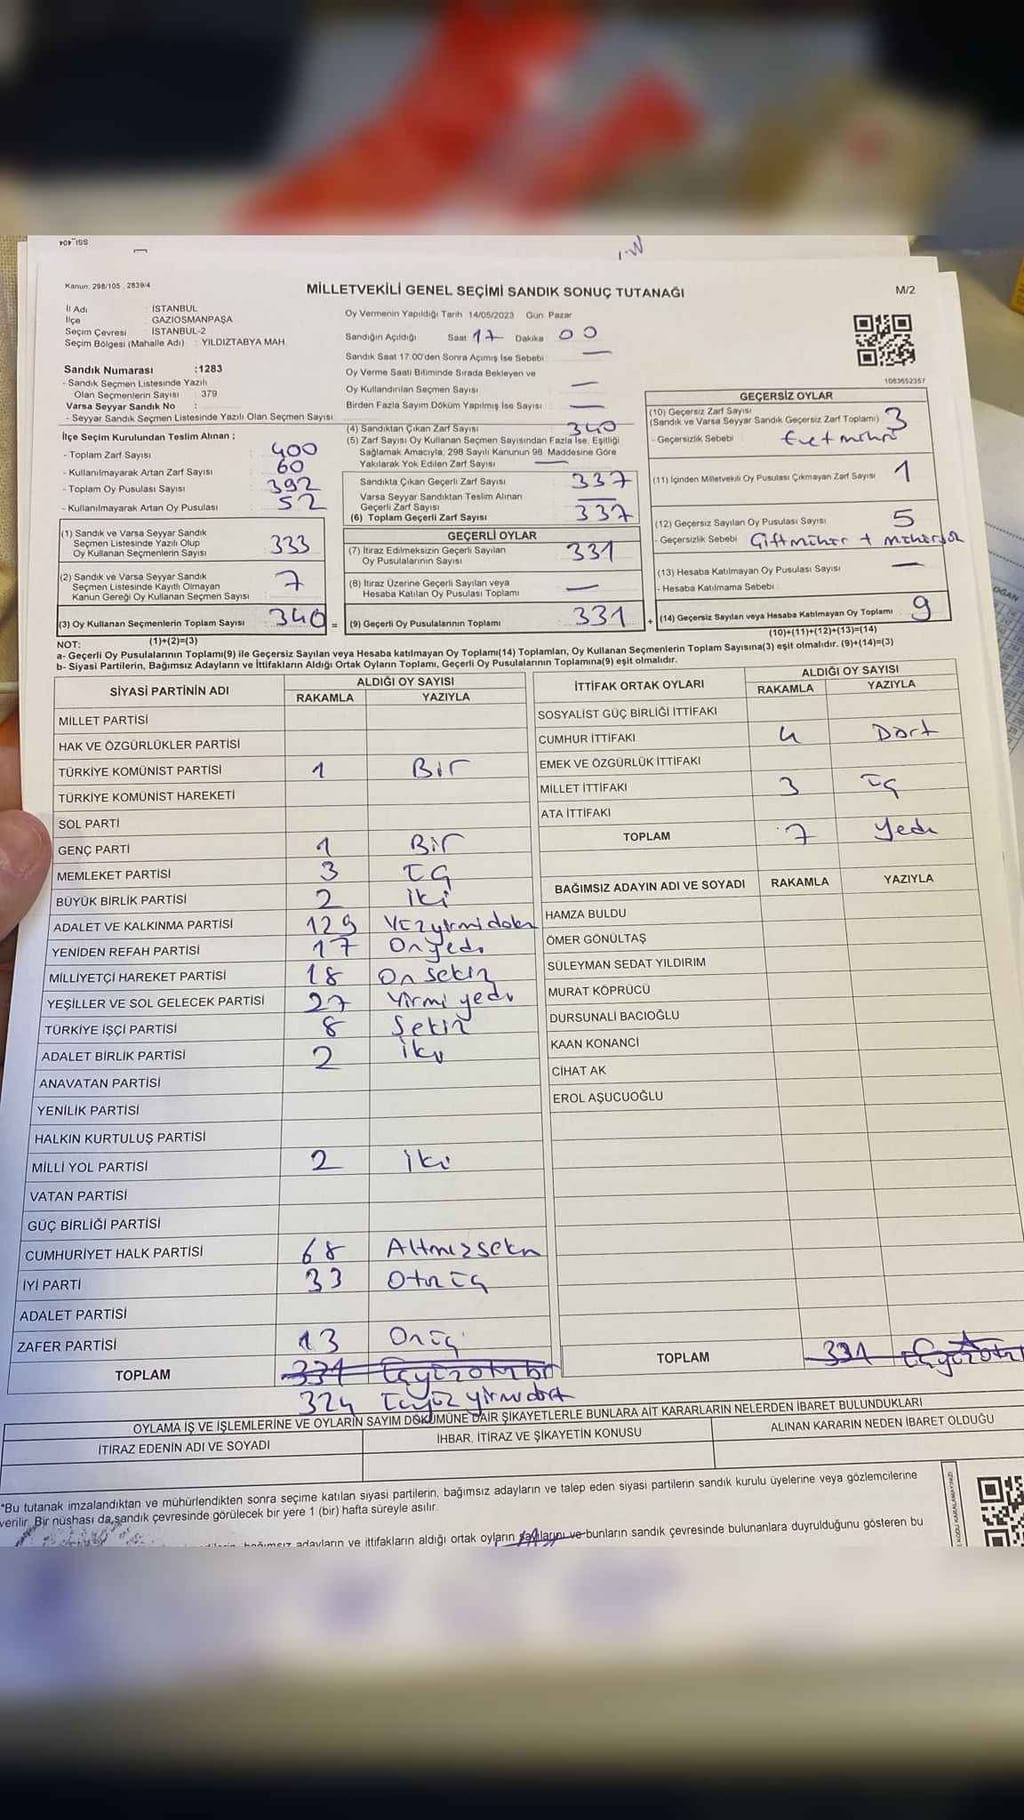 MİLLETVEKİLİ GENEL SEÇİMİ SANDIK SONUÇ TUTANAĞI
M/2
Kanun: 298/105 , 2839/4
İl Adı : İSTANBUL
İlçe GAZİOSMANPAŞA
Seçim Çevresi : İSTANBUL-2
Seçim Bölgesi (Mahalle Adı) : YILDIZTABYA MAH.
Oy Vermenin Yapıldığı Tarih 14/05/2023 Gün: Pazar
Sandığın Açıldığı Saat 17 Dakika 00
Sandık Saat 17:00'den Sonra Açımış İse Sebebi : —
Oy Verme Saati Bitiminde Sırada Bekleyen ve
Oy Kullandırılan Seçmen Sayısı —
Birden Fazla Sayım Döküm Yapılmış İse Sayısı : —
1083652357
Sandık Numarası :1283
- Sandık Seçmen Listesinde Yazılı
Olan Seçmenlerin Sayısı : 379
Varsa Seyyar Sandık No :
- Seyyar Sandık Seçmen Listesinde Yazılı Olan Seçmen Sayısı
İlçe Seçim Kurulundan Teslim Alınan ;
- Toplam Zarf Sayısı 400
- Kullanılmayarak Artan Zarf Sayısı 60
- Toplam Oy Pusulası Sayısı 392
- Kullanılmayarak Artan Oy Pusulası 52
(1) Sandık ve Varsa Seyyar Sandık
Seçmen Listesinde Yazılı Olup
Oy Kullanan Seçmenlerin Sayısı 333
(2) Sandık ve Varsa Seyyar Sandık
Seçmen Listesinde Kayıtlı Olmayan
Kanun Gereği Oy Kullanan Seçmen Sayısı 7
(3) Oy Kullanan Seçmenlerin Toplam Sayısı 340 =
(1)+(2)=(3)
(4) Sandıktan Çıkan Zarf Sayısı 340
(5) Zarf Sayısı Oy Kullanan Seçmen Sayısından Fazla İse, Eşitliği
Sağlamak Amacıyla, 298 Sayılı Kanunun 98. Maddesine Göre
Yakılarak Yok Edilen Zarf Sayısı —
Sandıkta Çıkan Geçerli Zarf Sayısı 337
Varsa Seyyar Sandıktan Teslim Alınan
Geçerli Zarf Sayısı —
(6) Toplam Geçerli Zarf Sayısı 337
GEÇERLİ OYLAR
(7) İtiraz Edilmeksizin Geçerli Sayılan
Oy Pusulalarının Sayısı 331
(8) İtiraz Üzerine Geçerli Sayılan veya
Hesaba Katılan Oy Pusulası Toplamı —
(9) Geçerli Oy Pusulalarının Toplamı 331 +
GEÇERSİZ OYLAR
(10) Geçersiz Zarf Sayısı
(Sandık ve Varsa Seyyar Sandık Geçersiz Zarf Toplamı) 3
- Geçersizlik Sebebi Evet mührü
(11) İçinden Milletvekili Oy Pusulası Çıkmayan Zarf Sayısı 1
(12) Geçersiz Sayılan Oy Pusulası Sayısı 5
- Geçersizlik Sebebi Çiftmühür +
(13) Hesaba Katılmayan Oy Pusulası Sayısı —
- Hesaba Katılmama Sebebi :
(14) Geçersiz Sayılan veya Hesaba Katılmayan Oy Toplamı 9
(10)+(11)+(12)+(13)=(14)
NOT:
a- Geçerli Oy Pusulalarının Toplamı(9) ile Geçersiz Sayılan veya Hesaba katılmayan Oy Toplamı(14) Toplamları, Oy Kullanan Seçmenlerin Toplam Sayısına(3) eşit olmalıdır. (9)+(14)=(3)
b- Siyasi Partilerin, Bağımsız Adayların ve İttifakların Aldığı Ortak Oyların Toplamı, Geçerli Oy Pusulalarının Toplamına(9) eşit olmalıdır.
SİYASİ PARTİNİN ADI ALDIĞI OY SAYISI
RAKAMLA YAZIYLA
MİLLET PARTİSİ
HAK VE ÖZGÜRLÜKLER PARTİSİ
TÜRKİYE KOMÜNİST PARTİSİ 1 Bir
TÜRKİYE KOMÜNİST HAREKETİ
SOL PARTİ
GENÇ PARTİ 1 Bir
MEMLEKET PARTİSİ 3 Üç
BÜYÜK BİRLİK PARTİSİ 2 İki
ADALET VE KALKINMA PARTİSİ 129 Yüzyirmidokuz
YENİDEN REFAH PARTİSİ 17 Onyedi
MİLLİYETÇİ HAREKET PARTİSİ 18 Onsekiz
YEŞİLLER VE SOL GELECEK PARTİSİ 27 Yirmi yedi
TÜRKİYE İŞÇİ PARTİSİ 8 Sekiz
ADALET BİRLİK PARTİSİ 2 iki
ANAVATAN PARTİSİ
YENİLİK PARTİSİ
HALKIN KURTULUŞ PARTİSİ
MİLLİ YOL PARTİSİ 2 iki
VATAN PARTİSİ
GÜÇ BİRLİĞİ PARTİSİ
CUMHURİYET HALK PARTİSİ 68 Altmışsekiz
İYİ PARTİ 33 Otuzüç
ADALET PARTİSİ
ZAFER PARTİSİ 13 Onüç
TOPLAM 331 Üçyüzotuzbir
324 Üçyüz yirmidört
İTTİFAK ORTAK OYLARI ALDIĞI OY SAYISI
RAKAMLA YAZIYLA
SOSYALİST GÜÇ BİRLİĞİ İTTİFAKI
CUMHUR İTTİFAKI 4 Dört
EMEK VE ÖZGÜRLÜK İTTİFAKI
MİLLET İTTİFAKI 3 Üç
ATA İTTİFAKI
TOPLAM 7 Yedi
BAĞIMSIZ ADAYIN ADI VE SOYADI RAKAMLA YAZIYLA
HAMZA BULDU
ÖMER GÖNÜLTAŞ
SÜLEYMAN SEDAT YILDIRIM
MURAT KÖPRÜCÜ
DURSUNALİ BACIOĞLU
KAAN KONANCİ
CİHAT AK
EROL AŞUCUOĞLU
TOPLAM 331
OYLAMA İŞ VE İŞLEMLERİNE VE OYLARIN SAYIM DÖKÜMÜNE DAİR ŞİKAYETLERLE BUNLARA AİT KARARLARIN NELERDEN İBARET BULUNDUKLARI
İTİRAZ EDENİN ADI VE SOYADI İHBAR, İTİRAZ VE ŞİKAYETİN KONUSU ALINAN KARARIN NEDEN İBARET OLDUĞU
"Bu tutanak imzalandıktan ve mühürlendikten sonra seçime katılan siyasi partilerin, bağımsız adayların ve talep eden siyasi partilerin sandık kurulu üyelerine veya gözlemcilerine
verilir. Bir nüshası da sandık çevresinde görülecek bir yere 1 (bir) hafta süreyle asılır.
adayların ve ittifakların aldığı ortak oyların sayılarını ve bunların sandık çevresinde bulunanlara duyrulduğunu gösteren bu